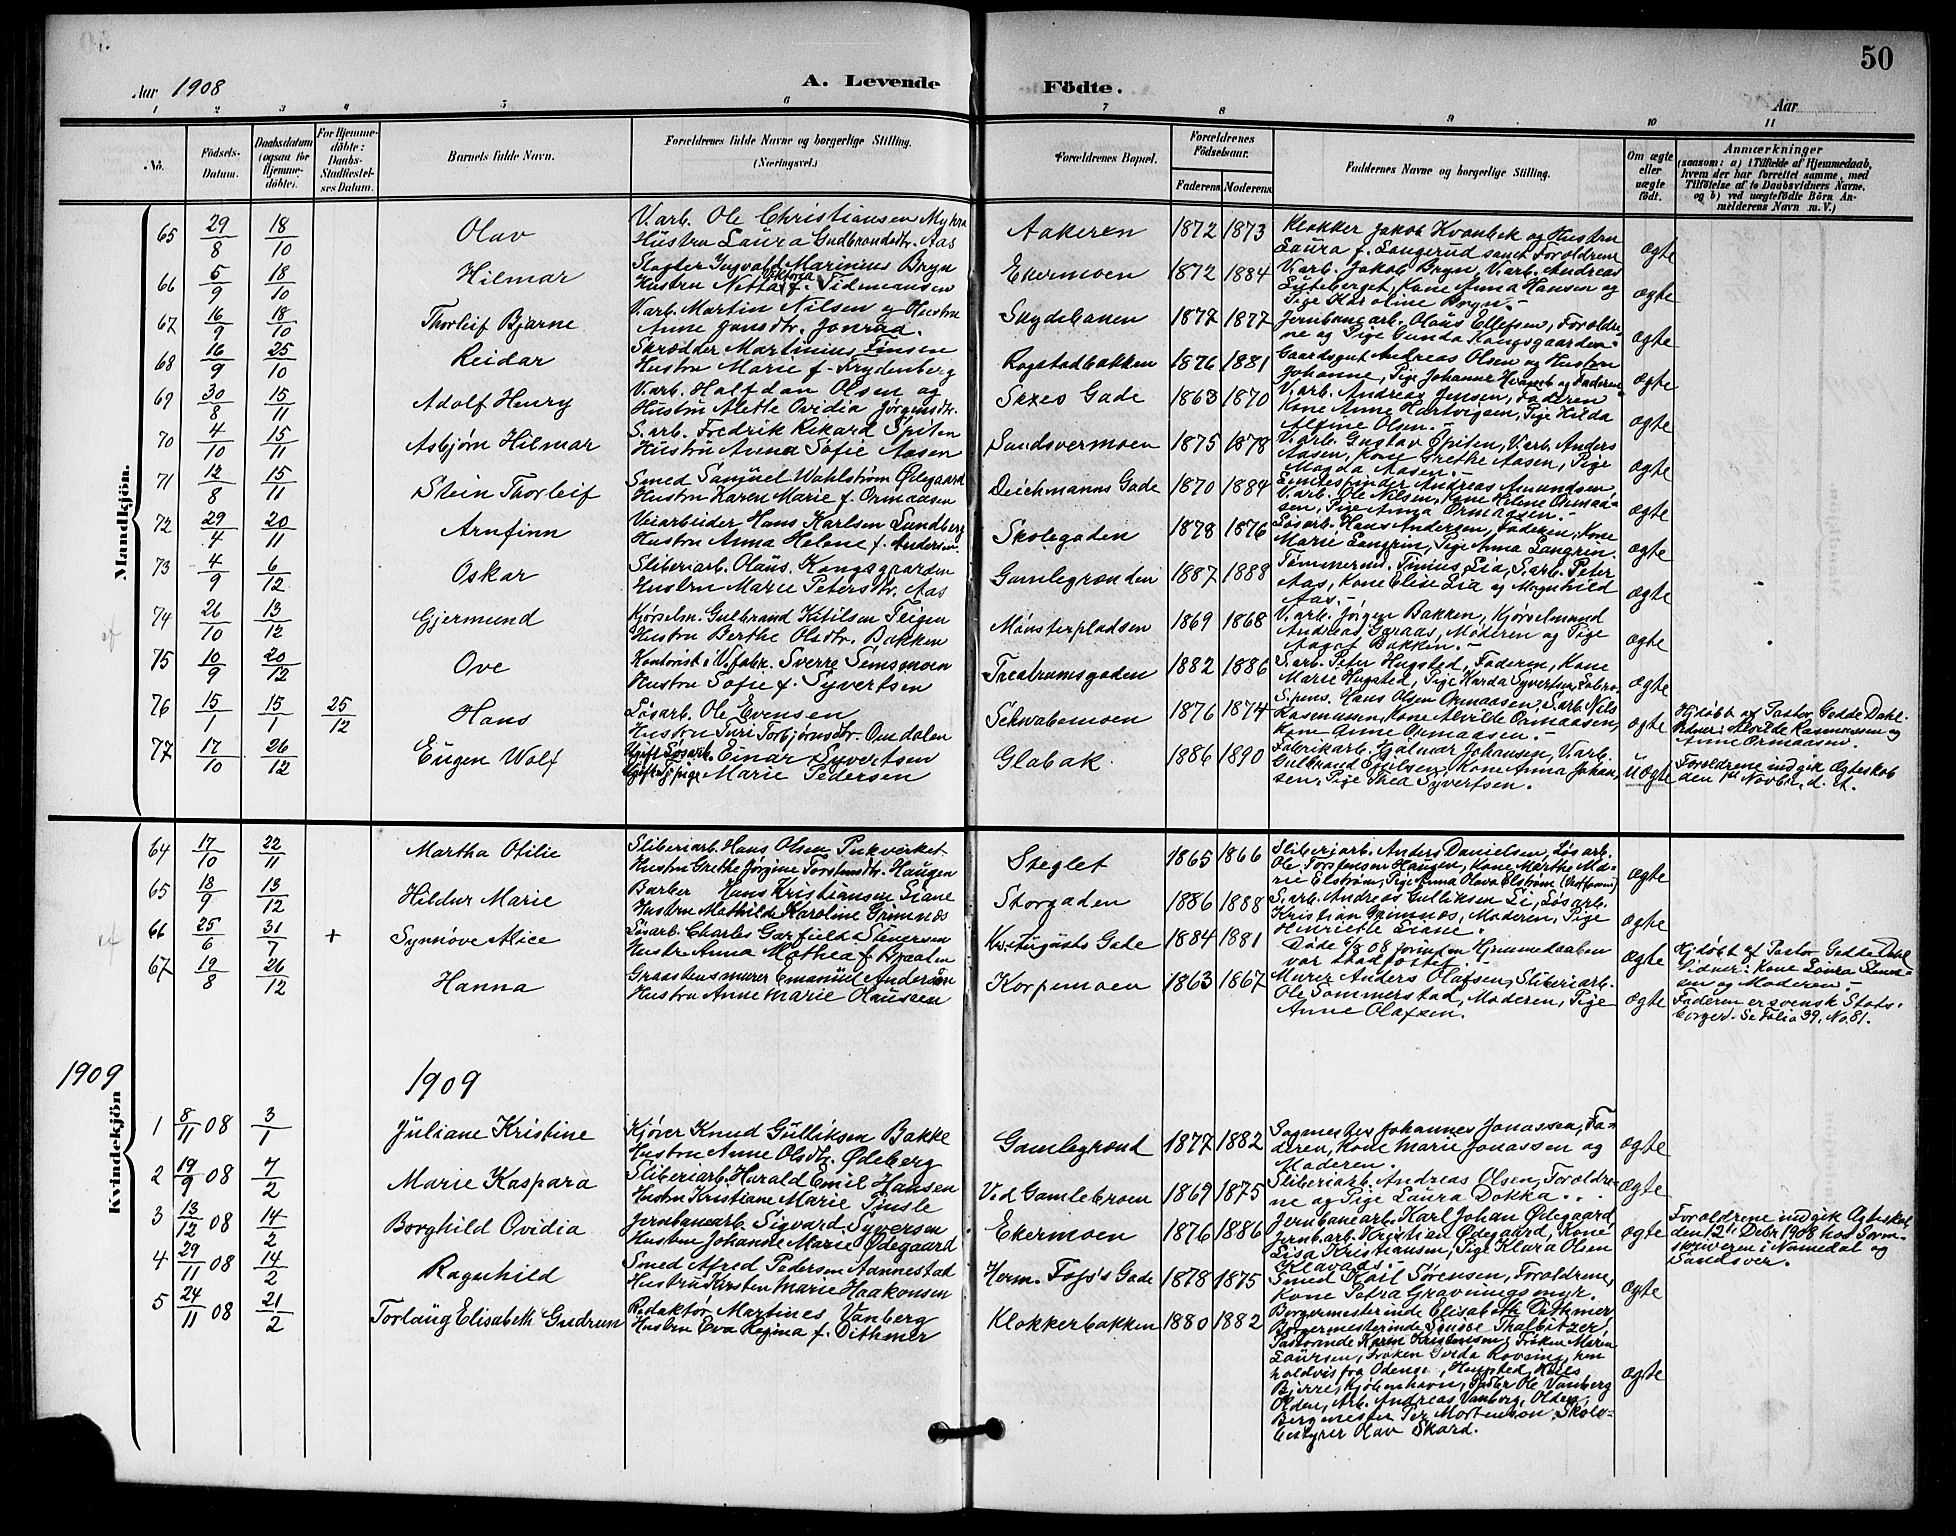 50
Aar 1908 A. Levende Födte. Aar
1 2 3 4 5 6 7 8 9 10 11
No. Födsels-Datum. Daabsdatum (ogsaa for Hjemmedöbte). For Hjemmedöbte: Daabs-Stadfæstelses Datum. Barnets fulde Navn. Forældrenes fulde Navne og borgerlige Stilling. (Næringsvei.) Forældrenes Bopæl. Forældrenes Födselsaar. Faderens Moderens Faddernes Navne og borgerlige Stilling. Om ægte eller uægte födt. Anmærkninger (saasom: a) i Tilfælde af Hjemmedaab, hvem der har forrettet samme, med Tilföielse af to Daabsvidners Navne. og b) ved uægtefödte Börn Anmelderens Navn m. V.)
Mandkjön.
65 29/8 18/10 Olav V.arb. Ole Christiansen Myhra Hustru Laura Gudbrandsdtr. Aas Aakeren 1872 1873 Klokker Jakob Kvanbek og Hustru Laura f. Langerud samt Forældrene ægte
66 5/9 18/10 Hilmar Slagter Ingvald Marinius Bryn Hustru Netta Viktoria f. Tidemansen Ekermoen 1872 1884 V.arb. Jakob Bryn, V.arb. Andreas Luteberget, Kone Anna Hansen og Pige Karoline Bryn. ægte
67 16/9 18/10 Thorleif Bjarne V.arb. Martin Nilsen og Hustru Anne Jonsdtr. Jonrud. Skydebanen 1877 1877 Jernbanearb. Olaus Ellefsen, Forældrene og Pige Gunda Kongsgaarden. ægte
68 16/9 25/10 Reidar Skrædder Martinius Finsen Hustru Marie f. Frydenberg Rogstadbakken 1876 1881 Gaardsgut Andreas Olsen og Hustru Johanne, Pige Johanne Hvamb og Faderen ægte
69 30/8 15/11 Adolf Henry V.arb. Halfdan Olsen og Hustru Alette Ovidia Jørgensdtr. Skres Gade 1863 1870 V.arb. Andreas Jensen, Faderen Kone Anne Hartvigsen, Pige Hilda Alfine Olsen. ægte
70 4/10 15/11 Asbjørn Hilmar S.arb. Fredrik Rikard Spiten Hustru Anna Sofie Aasen Sandsvermoen 1875 1878 V.arb. Gustav Spiten, V.arb. Anders Aasen, Kone Grethe Aasen, Pige Magda Aasen. ægte
71 12/8 15/11 Stein Thorleif Smed Samuel Wahlstrøm Ødegaard Hustru Karen Marie f. Ormaasen Deichmanns Gade 1870 1884 Buntebinder Andreas Amundsen V.arb. Ole Nilsen, Kone Helene Ormaasen, Pige Anna Ormaasen. ægte
72 29/4 20/11 Arnfinn Veiarbeider Hans Karlsen Lundberg Hustru Anna Helene f. Andersen Skolegaden 1878 1876 Løsarb. Hans Andersen, Faderen, Kone Marie Langrin, Pige Anna Langren. ægte
73 4/9 6/12 Oskar Sliberiarb. Olaus Kongsgaarden Hustru Marie Petersdtr. Aas Gamlegrænden 1887 1888 Tømmermd. Tinius Lia, S.arb. Peter Aas, Kone Elise Lia og Magnhild Aas. ægte
74 26/10 13/12 Gjermund Kjørselm. Gulbrand Ketilsen Teigen Hustru Berthe Olsdtr. Bakken Mønsterpladsen 1869 1868 V.arb. Jørgen Bakken, Kjørselmand Andreas Garaas, Moderen og Pige Aagot Bakken. ægte
75 10/9 20/12 Ove Kontorist i V.fabr. Sverre Simonsen Hustru Sofie f. Syvertsen Treatrumsgaden 1882 1886 S.arb. Peter Hugsted, Faderen, Kone Marie Hugsted, Pige Harda Syvertsen, ægte
76 15/1 15/1 25/12 Hans Løsarb. Ole Evensen Hustru Turi Torbjørnsdtr. Omdalen Schwabemoen 1876 1874 Hans Olsen Ormaasen, S.arb. Nils Rasmussen, Kone Alvilde Ormaasen, Kone Anne Ormaasen. ægte Hjdøbt af Pastor Gedde Dahl. Vidner: Alvilde Rasmussen og Anne Ormaasen.
77 17/10 26/12 Eugen Wolf Ugift Løsarb. Einar Syvertsen Ugift Sypige Marie Pedersen Glabak 1886 1890 Fabrikarb. Hjalmar Johansen, V.arb. Gulbrand Emilsen, Kone Anna Johansen, Pige Thea Syvertsen. uægte Forældrene indgik Ægteskab den 1st Novbr. d. A.
Kvindekjön
64 17/10 22/11 Martha Otilie Sliberiarb. Hans Olsen Pukverket Hustru Grethe Jørgine Torstensdtr. Haugen Steglet 1865 1866 Sliberiarb. Anders Danielsen, Løsarb. Ole Torstensen Haugen, Kone Marthe Marie Elstrøm, Pige Anna Olava Elstrøm ægte
65 18/9 13/12 Hildur Marie Barber Hans Kristiansen Liane Hustru Mathilde Karoline Grimnæs Storgaden 1886 1888 S.arb. Andreas Gulliksen Li, Løsarb. Kristian Grimnæs, Moderen, Pige Henriette Liane. ægte
66 25/6 31/7 + Synnøve Alice Løsarb. Charles Garfield Stenersen Hustru Anna Mathea f. Braaten Kr. Augusts Gade 1884 1881 Døde 6/8 08 forinden Hjemmedaaben var stadfæstet. ægte Hjdøbt af Pastor Gedde Dahl Vidner: Kone Laura og Moderen.
67 19/8 26/12 Hanna Graastensmurer Emanuel Andersen Hustru Anne Marie Olaussen Korpemoen 1863 1867 Murer Anders Olafsen, Sliberiarb. Ole Sommerstad, Moderen, Pige Anne Olafsen. ægte Faderen er svensk Statsborger. Se Folio 39, No. 81.
1909 1909
1 8/11 08 3/1 Juliane Kristine Kjører Knud Gulliksen Bakke Hustru Anne Olsdtr. Ødeberg Gamlegrænd 1877 1882 Sagmester Johannes Jonassen, Faderen, Kone Marie Jonassen og Moderen. ægte
2 19/9 08 7/2 Marie Kaspara Sliberiarb. Harald Emil Hansen Hustru Kristiane Marie Pinsle Ved Gamlebroen 1869 1875 Sliberiarb. Andreas Olsen, Forældrene og Pige Laura Dokka. ægte
3 13/12 08 14/2 Borghild Ovidia Jernbanearb. Sigvard Syversen Hustru Johanne Marie Ødegaard Ekermoen 1876 1886 Jernbanearb. Karl Johan Ødegaard, Jernb.arb. Kristian Ødegaard, Kone Lisa Kristiansen, Pige Klara Olsen ægte Forældrene indgik Ægteskab den 12te Decbr. 1908 hos Sorenskriveren i Numedal og Sandsver.
4 29/11 08 14/2 Ragnhild Smed Alfred Pedersen Aannestad Hustru Karsten Marie Haakonsen Herm. Foss's Gade 1878 1875 Smed Karl Sørensen, Forældrene, Kone Petra Gravningsmyr. ægte
5 24/11 08 21/2 Torlaug Elisabeth Gudrun Redaktør Martines Vanberg Hustru Eva Regina f. Dithmer Klokkerbakken 1880 1882 Borgermesterinde Elisabeth Dithmer, Borgermesterinde Thalbitzer, Pastorinde Karen Kristensen, Frøken Maren Laursen, Frøken Gerda Rovsing, henholdvis fra Odense, Bjerre, Kjøbenhavn, Ole Vanberg Olden, Arb. Andreas Vanberg, Olden, Bergmester Per Mortenson, Skolebestyrer Olav Skard. ægte